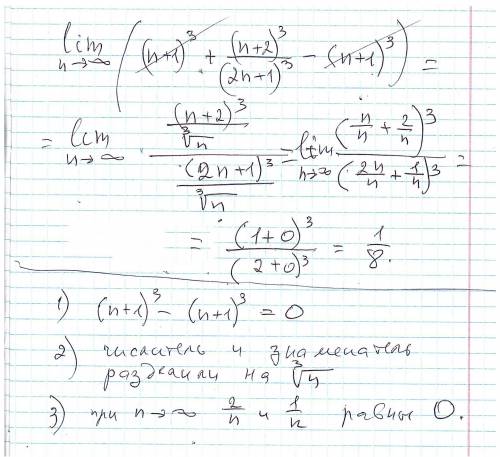 lim n→∞ ( (n+1)³ + (n+2)³/(2n+1)³ − (n+1)³ ) =
= lim n→∞ ((n+2)³/∛n)/((2n+1)³/∛n) = lim n→∞ (n/n + 2/n)³/(2n/n + 1/n)³ =
= (1+0)³/(2+0)³ = 1/8.
1) (n+1)³ − (n+1)³ = 0
2) числитель и знаменатель
разделили на ∛n
3) при n→∞ 2/n и 1/n равны 0.